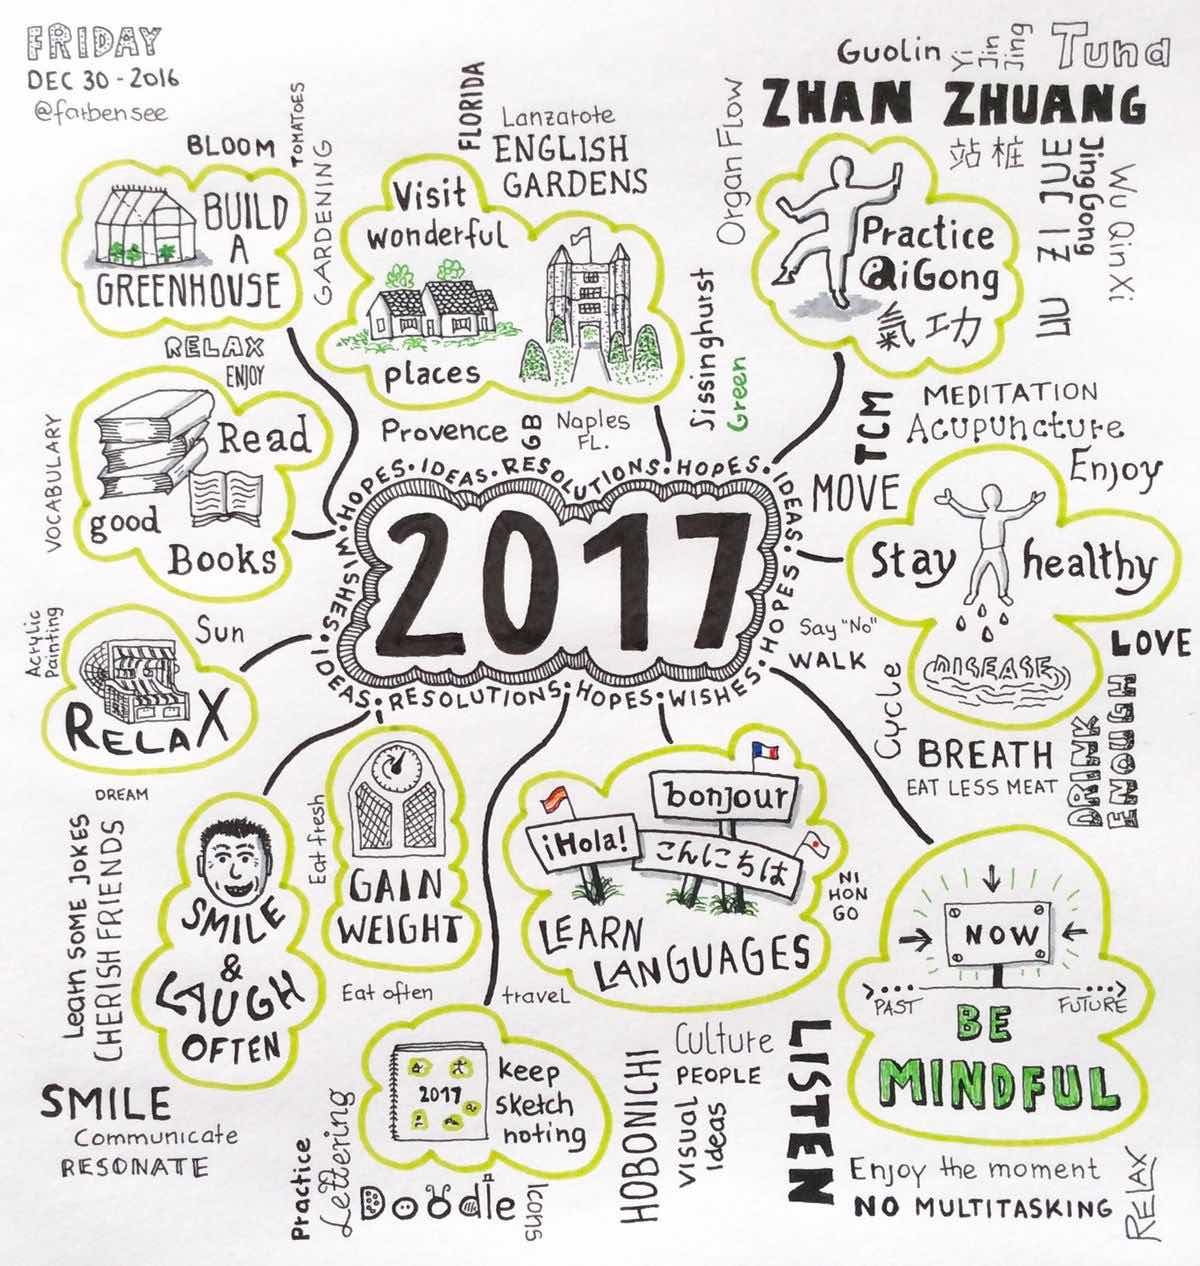 FRIDAY
DEC 30 - 2016
@farbensee
BLOOM
TOMATOES
GARDENING
BUILD
A
GREENHOUSE
FLORIDA
Lanzarote
ENGLISH
GARDENS
Visit
wonderful
places
Provence
GB
Naples
FL.
Sissinghurst
Green
Organ Flow
Guolin
Yi
Jin
Jing
Tuna
ZHAN ZHUANG
站桩
LIU ZI JUE
Jing Gong
Wu Qin Xi
Practice
QiGong
氣工功
RELAX
ENJOY
VOCABULARY
Read
good
Books
TCM
MEDITATION
Acupuncture
Enjoy
MOVE
Stay healthy
DISEASE
Say "No"
WALK
Cycle
LOVE
BREATH
EAT LESS MEAT
DRINK
ENOUGH
HOPES · IDEAS · RESOLUTIONS · HOPES · IDEAS · HOPES · WISHES · HOPES · RESOLUTIONS · IDEAS · WISHES ·
2017
Acrylic
Painting
Sun
RELAX
DREAM
Learn SOME JOKES
CHERISH FRIENDS
SMILE
&
LAUGH
OFTEN
SMILE
Communicate
RESONATE
Eat fresh
GAIN
WEIGHT
Eat often
travel
bonjour
¡Hola!
こんにちは
LEARN
LANGUAGES
NI
HON
GO
Culture
PEOPLE
2017
keep
sketch
noting
Practice
Lettering
Doodle
Icons
HOBONICHI
VISUAL
Ideas
LISTEN
NOW
PAST
FUTURE
BE
MINDFUL
Enjoy the moment
NO MULTITASKING
RELAX